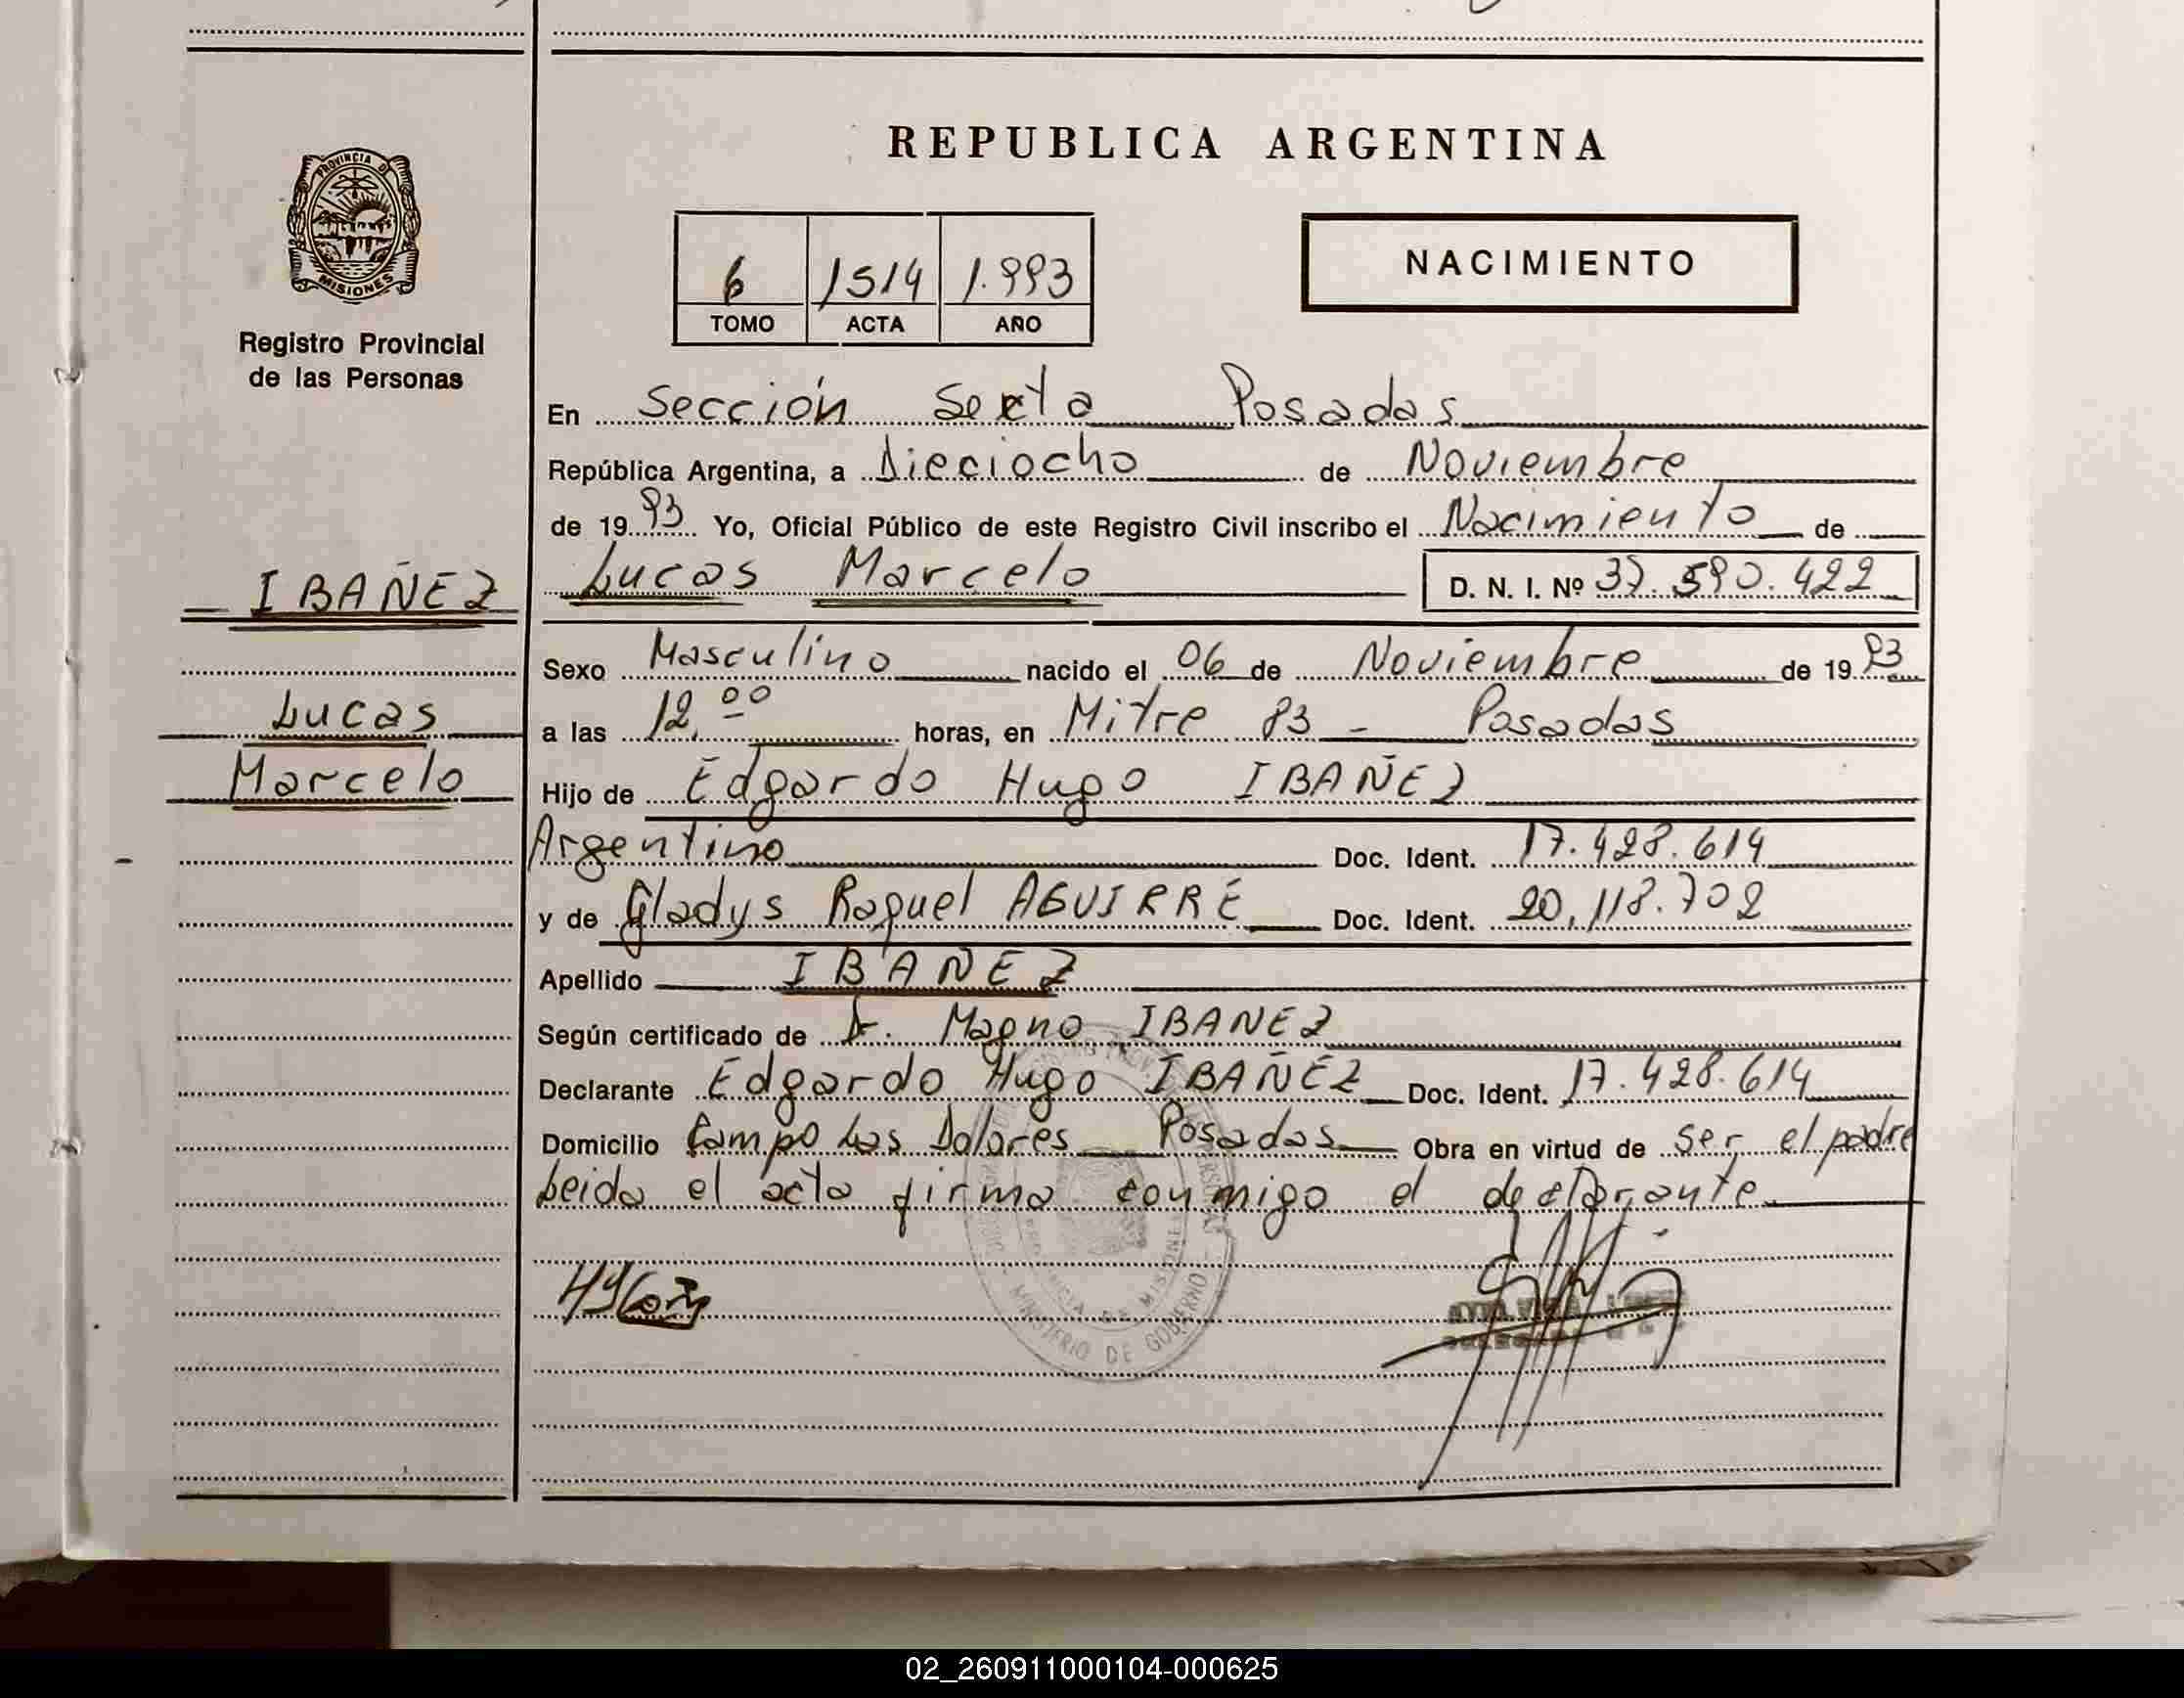 REPUBLICA ARGENTINA
PROVINCIA D
MISIONES
Registro Provincial
de las Personas
6 1514 1.993
TOMO ACTA AÑO
NACIMIENTO
En Sección Sexta Posadas
República Argentina, a Dieciocho de Noviembre
de 19 93 Yo, Oficial Público de este Registro Civil inscribo el Nacimiento de
IBAÑEZ
Lucas Marcelo D. N. I. Nº 37.590.422
Sexo Masculino nacido el 06 de Noviembre de 19 93
Lucas
a las 12,00 horas, en Mitre 83 - Posadas
Marcelo
Hijo de Edgardo Hugo IBAÑEZ
Argentino Doc. Ident. 17.428.614
y de Gladys Raquel AGUIRRE Doc. Ident. 20,118.702
Apellido IBAÑEZ
Según certificado de Dr. Magno IBAÑEZ
Declarante Edgardo Hugo IBAÑEZ Doc. Ident. 17.428.614
Domicilio Campo Las Dolores Posadas Obra en virtud de ser el padre
Leida el acta firma conmigo el declarante
MINISTERIO DE GOBERNO
02_260911000104-000625